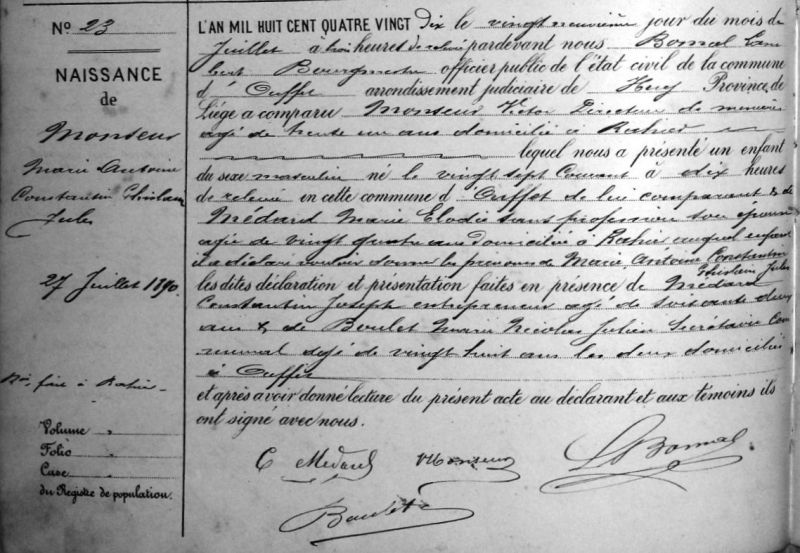 N° 23
NAISSANCE
de
Monseur
Marie Antoine
Constantin Ghislain
Jules
27 Juillet 1890
fixé à Rahier
Volume "
Folio "
Case
du Registre de population.
L'AN MIL HUIT CENT QUATRE VINGT dix le vingt neuvième jour du mois de
Juillet à trois heures de relevée pardevant nous Bomal Lam
bert Bourgmestre officier public de l'état civil de la commune
d'Ouffet arrondissement judiciaire de Huy Province de
Liége a comparu Monseur Victor Directeur de
agé de trente un ans domicilié à Rahier
lequel nous a présenté un enfant
du sexe masculin né le vingt sept Courant à dix heures
de relevée en cette commune d'Ouffet de lui comparant & de
Médard Marie Elodie sans profession son épouse
agée de vingt quatre ans domiciliée à Rahier auquel enfant
il a déclaré vouloir donner les prénoms de Marie, Antoine Constantin
Ghislain Jules
les dites déclaration et présentation faites en présence de Médard
Constantin Joseph entrepreneur agé de soixante deux
ans & de Boulet Marie Nicolas Julien Secrétaire Com
munal agé de vingt huit ans les deux domiciliés
à Ouffet
et après avoir donné lecture du présent acte au déclarant et aux témoins ils
ont signé avec nous.
C Medard VMonseur LBomal
Boulet